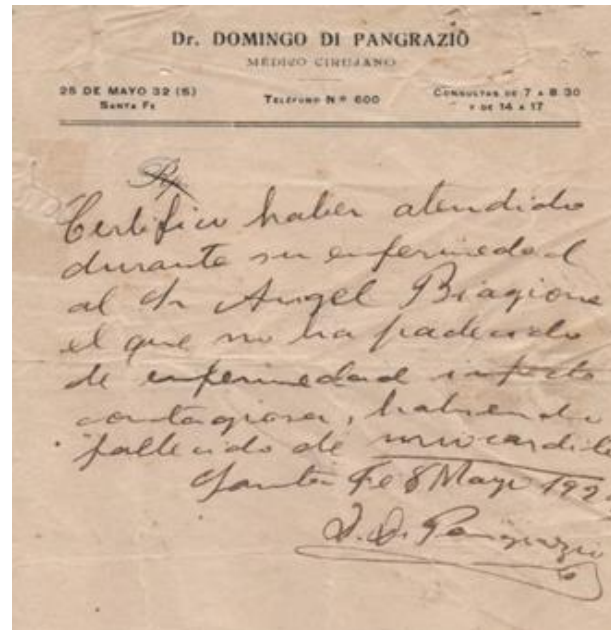 Dr. DOMINGO DI PANGRAZIO
MÉDICO CIRUJANO
25 DE MAYO 32 (S)
SANTA FE
TELÉFONO N.º 600
CONSULTAS DE 7 A 8.30
Y DE 14 A 17
Rp.
Certifico haber atendido
durante su enfermedad
al Sr Angel Biagione
el que no ha padecido
de enfermedad infecto
contagiosa, habiendo
fallecido de miocardite
Santa Fe 8 Mayo 192
D. Di Pangrazio